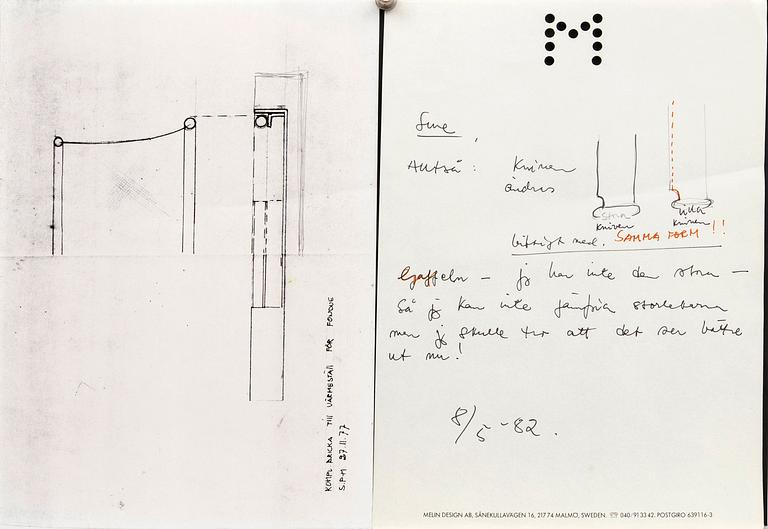 KOMPL. BRICKA TILL VÄRMESTÄLL FÖR FONDUE
S.P-M 27.11.77
M
Sune
Alltså: Kniven
ändras
stora
kniven
lilla
kniven
SAMMA FORM!!
Gaffeln – jg har inte den stora –
Så jg kan inte jämföra storlekarna
men jg skulle tro att det ser bättre
ut nu!
8/5-82.
MELIN DESIGN AB, SÅNEKULLAVÄGEN 16, 217 74 MALMÖ, SWEDEN. ☏ 040/91 33 42. POSTGIRO 639116-3